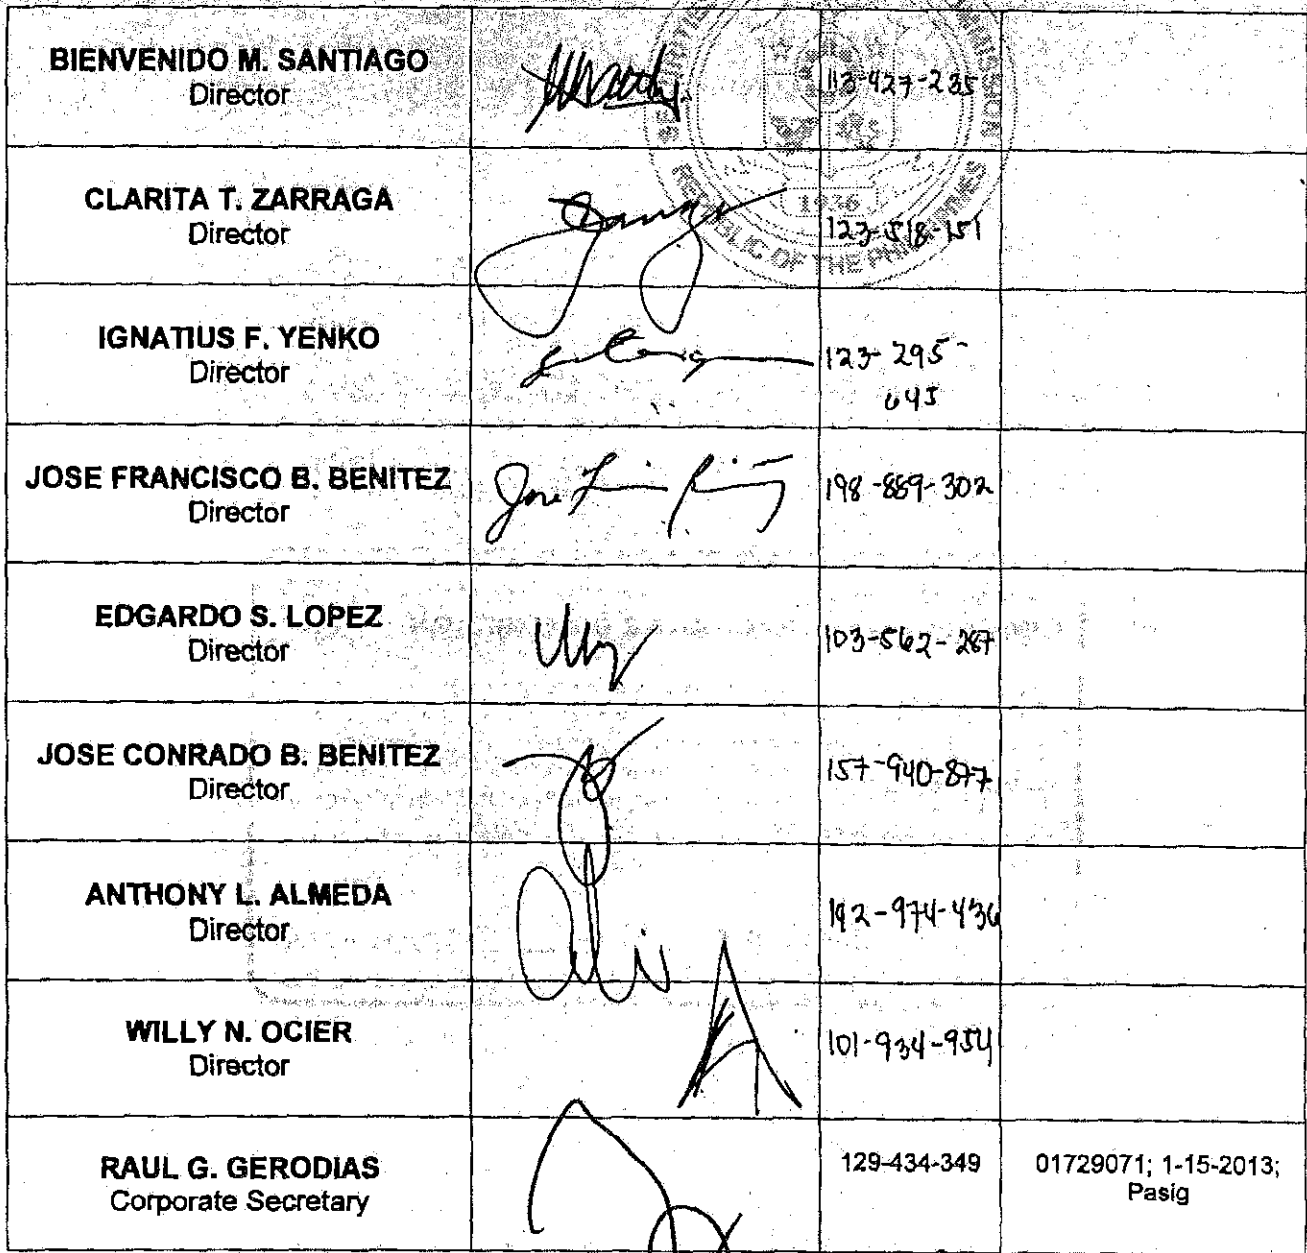 BIENVENIDO M. SANTIAGO
Director
113-427-235
CLARITA T. ZARRAGA
Director
123-518-151
IGNATIUS F. YENKO
Director
123-295-
645
JOSE FRANCISCO B. BENITEZ
Director
198-889-302
EDGARDO S. LOPEZ
Director
103-562-287
JOSE CONRADO B. BENITEZ
Director
157-940-877
ANTHONY L. ALMEDA
Director
192-974-436
WILLY N. OCIER
Director
101-934-954
RAUL G. GERODIAS
Corporate Secretary
129-434-349
01729071; 1-15-2013;
Pasig
1936
REPUBLIC OF THE PHILIPPINES